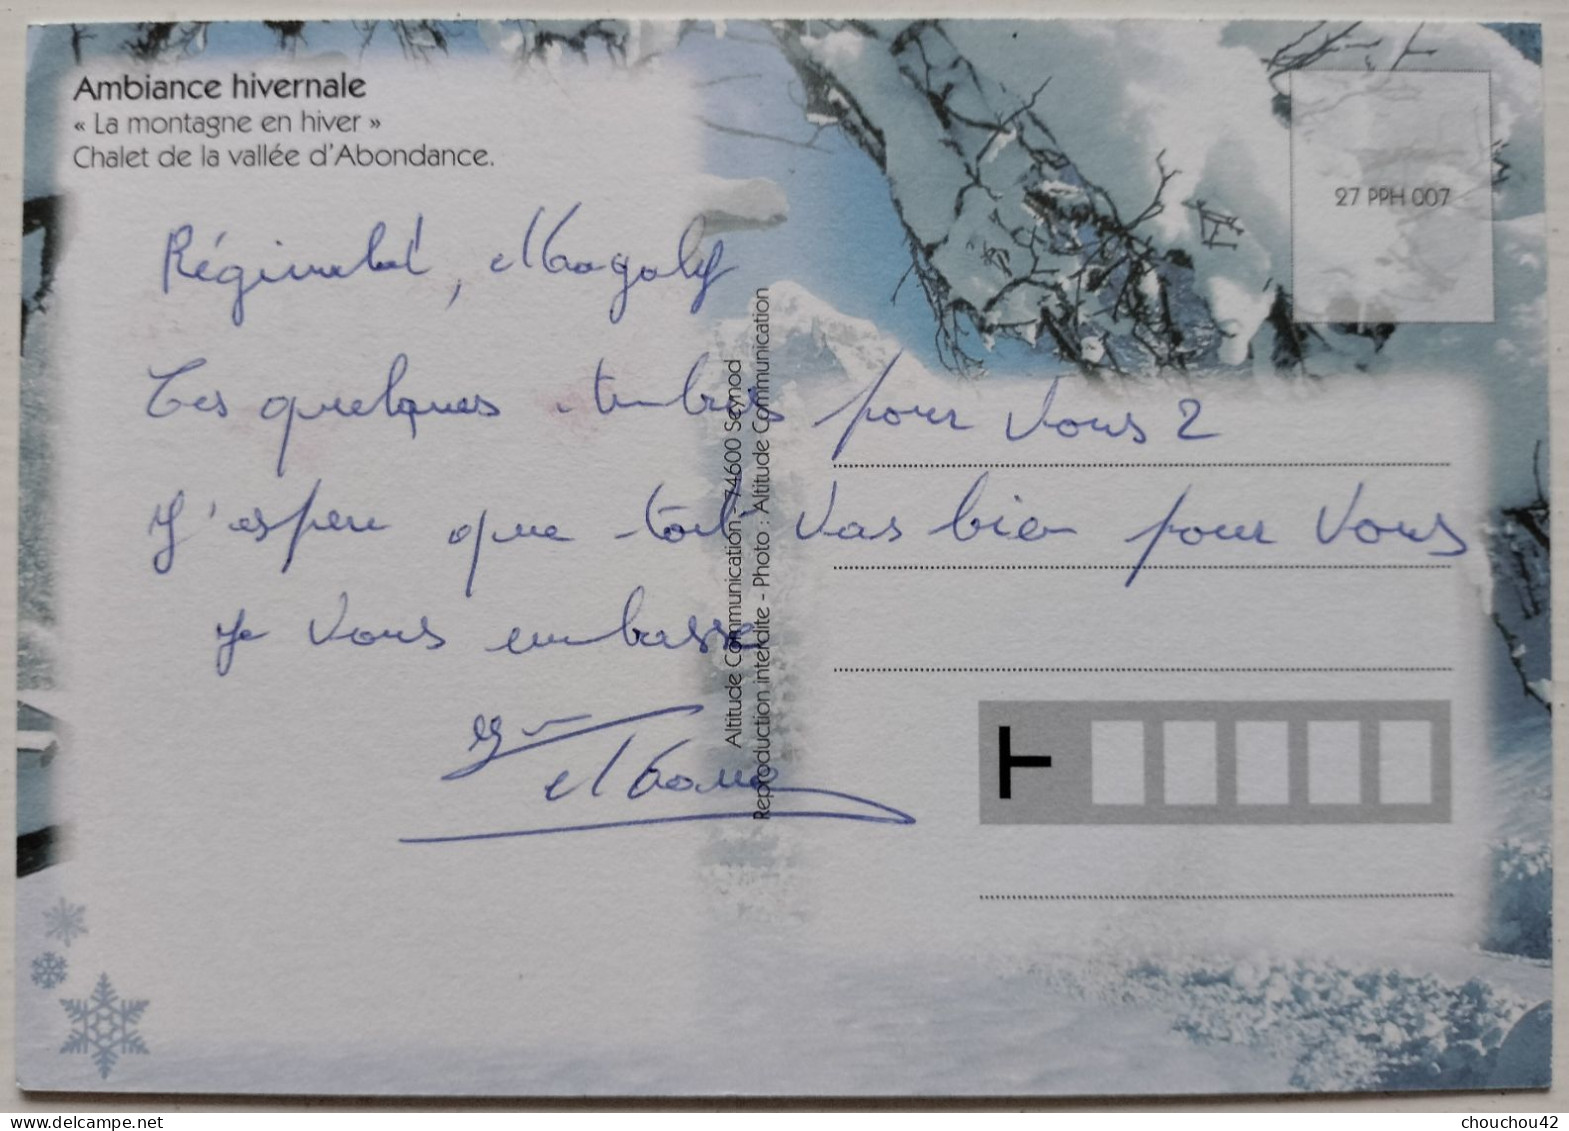 Ambiance hivernale
« La montagne en hiver »
Chalet de la vallée d'Abondance.
27 PPH 007
Réginald, Magaly
Ces quelques timbres pour Vous 2
J'espere que tout vas bien pour Vous
Je Vous embrasse
Altitude Communication - 74600 Seynod
Reproduction interdite - Photo : Altitude Communication
chouchou42